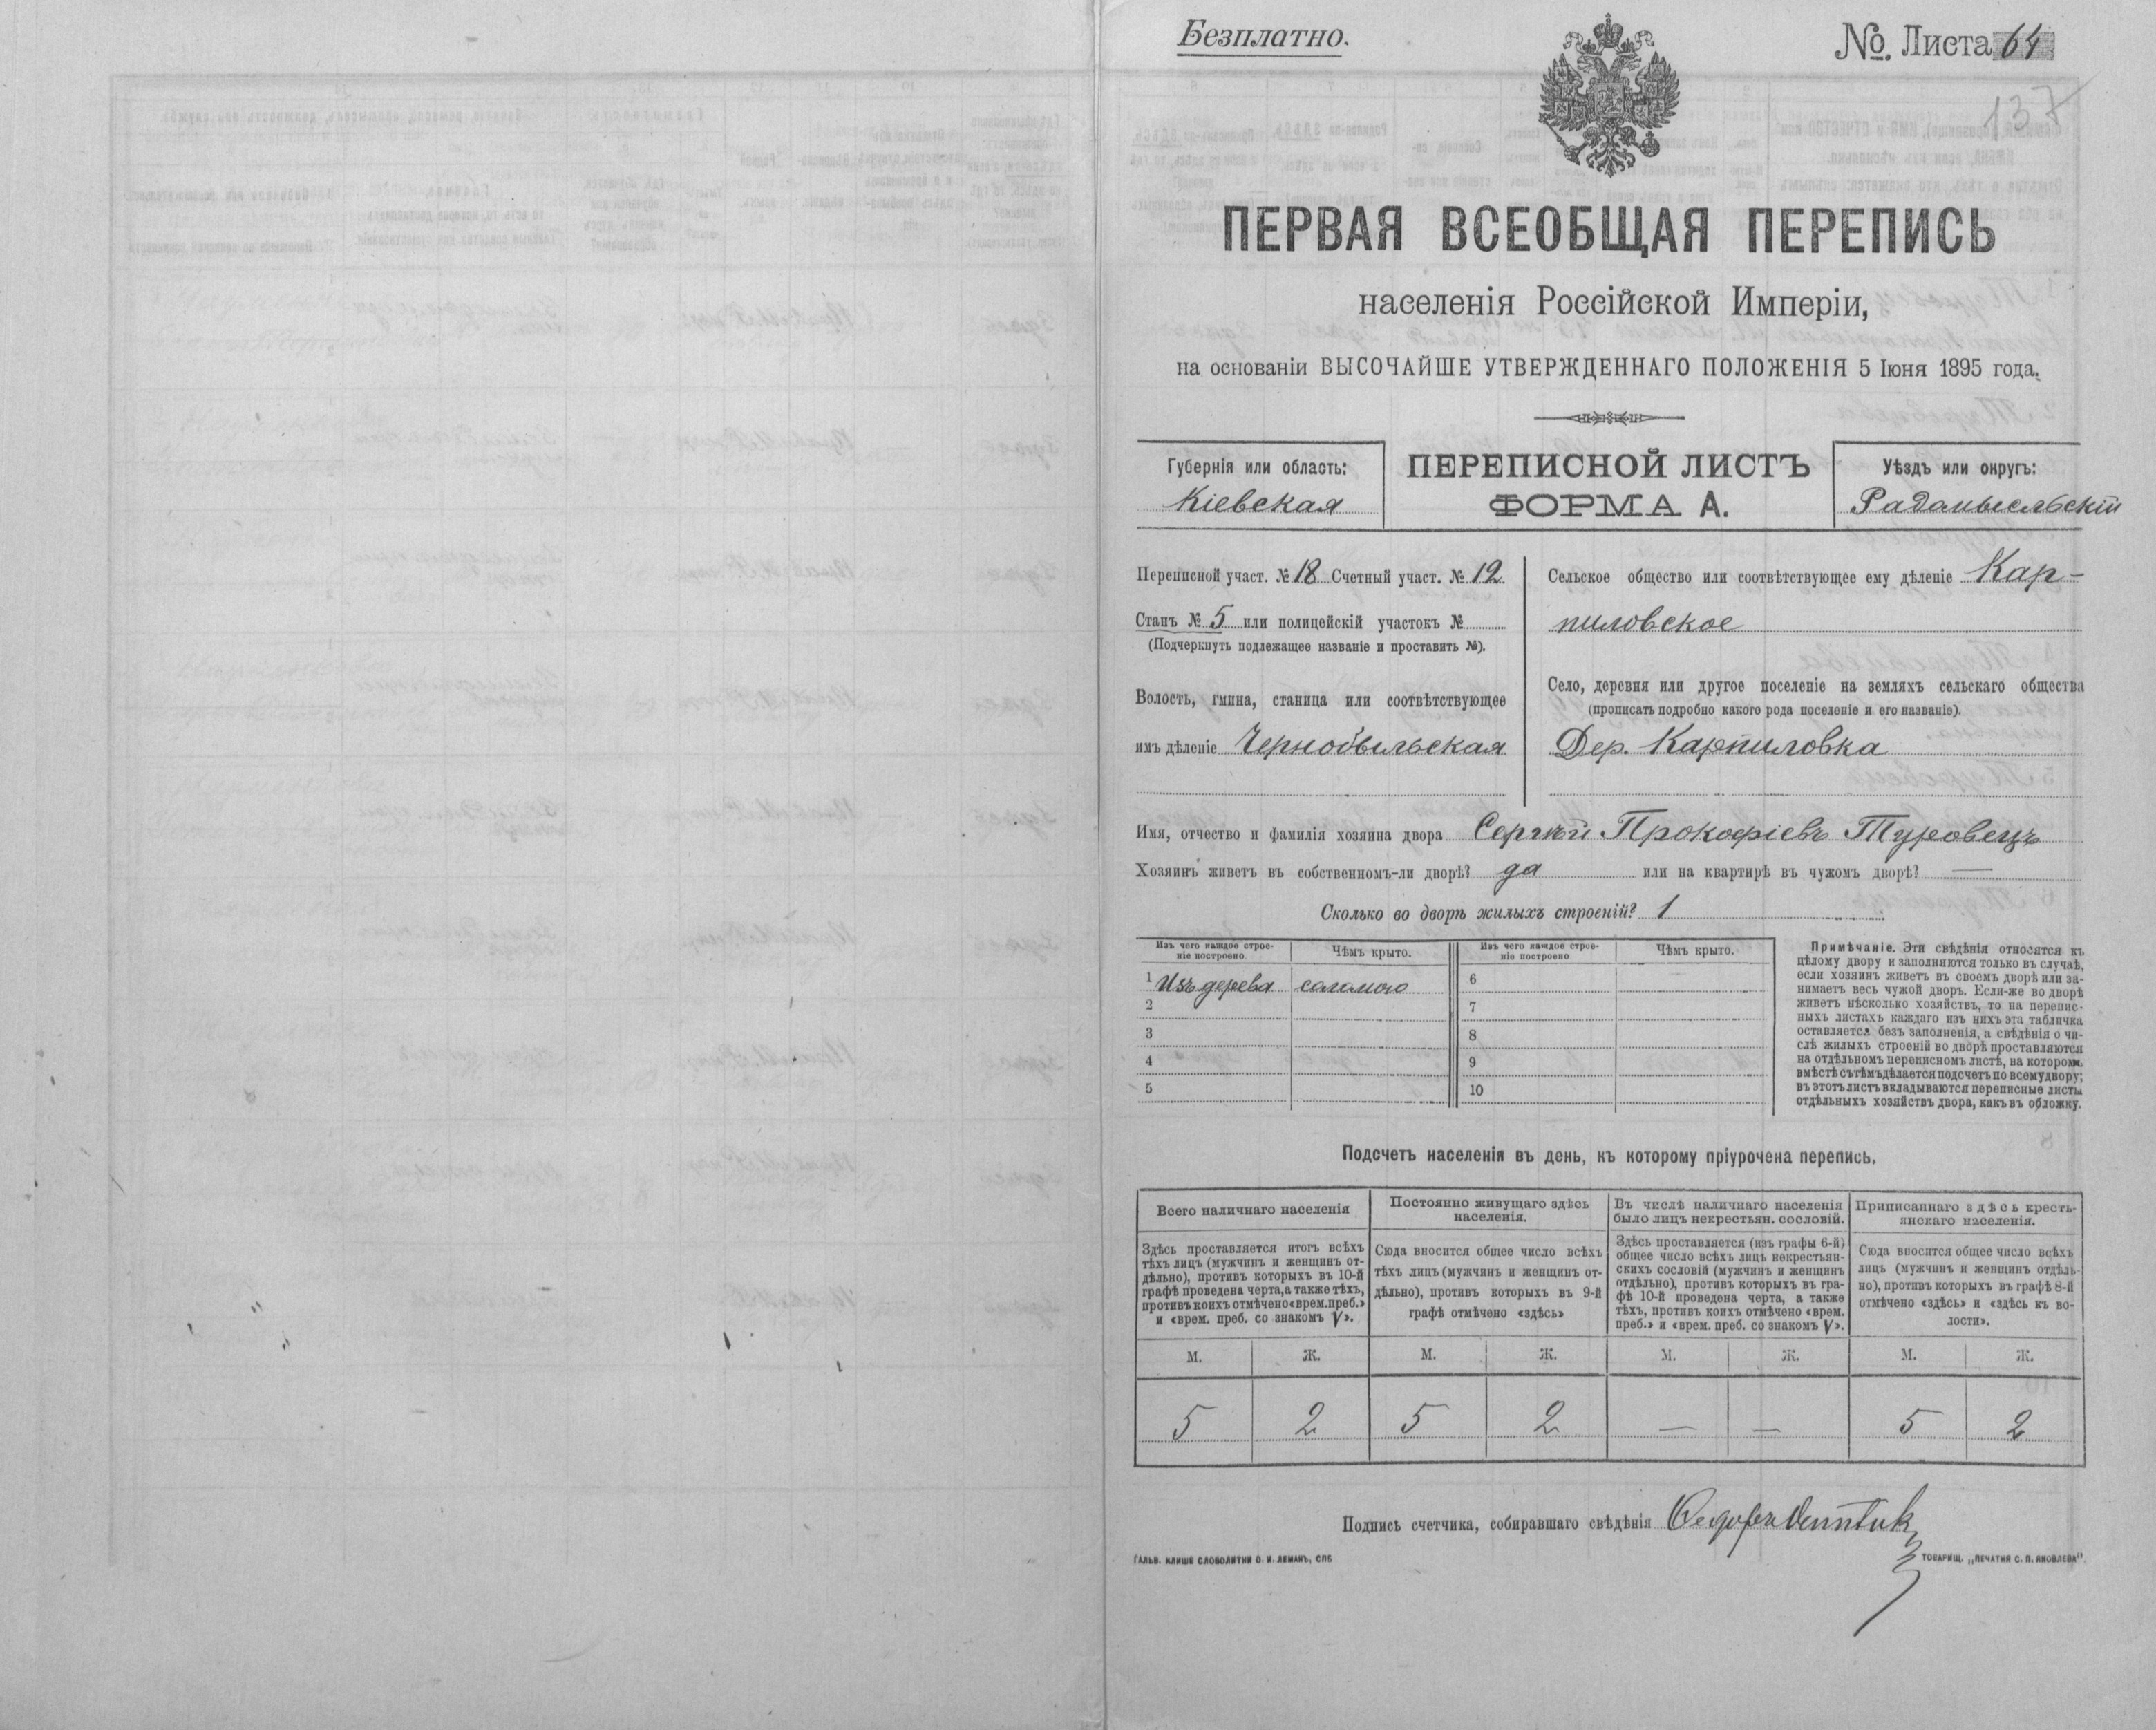 Безплатно.
№ Листа 64
137
ПЕРВАЯ ВСЕОБЩАЯ ПЕРЕПИСЬ
населенія Россійской Имперіи,
на основаніи ВЫСОЧАЙШЕ УТВЕРЖДЕННАГО ПОЛОЖЕНІЯ 5 Іюня 1895 года.
Губернія или область:
Кіевская
ПЕРЕПИСНОЙ ЛИСТЪ
ФОРМА А.
Уѣздъ или округъ:
Радомысльскій
Переписной участ. № 18 Счетный участ. № 12
Станъ № 5 или полицейскій участокъ №
(Подчеркнуть подлежащее названіе и проставить №).
Волость, гмина, станица или соотвѣтствующее
имъ дѣленіе Чернобыльская
Сельское общество или соотвѣтствующее ему дѣленіе Кар-
пиловское
Село, деревня или другое поселеніе на земляхъ сельскаго общества
(прописать подробно какого рода поселеніе и его названіе).
Дер. Карпиловка
Имя, отчество и фамилія хозяина двора Сергѣй Прокофіевъ Туровецъ
Хозяинъ живетъ въ собственномъ-ли дворѣ? да или на квартирѣ въ чужомъ дворѣ? —
Сколько во дворѣ жилыхъ строеній? 1
Изъ чего каждое строе-
ніе построено
Чѣмъ крыто.
Изъ чего каждое строе-
ніе построено
Чѣмъ крыто.
1 Изъ дерева соломою 6
2 7
3 8
4 9
5 10
Примѣчаніе. Эти свѣдѣнія относятся къ
цѣлому двору и заполняются только въ случаѣ,
если хозяинъ живетъ въ своемъ дворѣ или за-
нимаетъ весь чужой дворъ. Если-же во дворѣ
живетъ нѣсколько хозяйствъ, то на перепис-
ныхъ листахъ каждаго изъ нихъ эта табличка
оставляется безъ заполненія, а свѣдѣнія о чи-
слѣ жилыхъ строеній во дворѣ проставляются
на отдѣльномъ переписномъ листѣ, на которомъ
вмѣстѣ съ тѣмъ дѣлается подсчетъ по всему двору;
въ этотъ листъ вкладываются переписные листы
отдѣльныхъ хозяйствъ двора, какъ въ обложку.
Подсчетъ населенія въ день, къ которому пріурочена перепись.
Всего наличнаго населенія
Постоянно живущаго здѣсь
населенія.
Въ числѣ наличнаго населенія
было лицъ некрестьян. сословій.
Приписаннаго здѣсь кресть-
янскаго населенія.
Здѣсь проставляется итогъ всѣхъ
тѣхъ лицъ (мужчинъ и женщинъ от-
дѣльно), противъ которыхъ въ 10-й
графѣ проведена черта, а также тѣхъ,
противъ коихъ отмѣчено «врем. преб.»
и «врем. преб. со знакомъ V».
Сюда вносится общее число всѣхъ
тѣхъ лицъ (мужчинъ и женщинъ от-
дѣльно), противъ которыхъ въ 9-й
графѣ отмѣчено «здѣсь»
Здѣсь проставляется (изъ графы 6-й)
общее число всѣхъ лицъ некрестьян-
скихъ сословій (мужчинъ и женщинъ
отдѣльно), противъ которыхъ въ гра-
фѣ 10-й проведена черта, а также
тѣхъ, противъ коихъ отмѣчено «врем.
преб.» и «врем. преб. со знакомъ V».
Сюда вносится общее число всѣхъ
лицъ (мужчинъ и женщинъ отдѣль-
но), противъ которыхъ въ графѣ 8-й
отмѣчено «здѣсь» и «здѣсь къ во-
лости».
М. Ж. М. Ж. М. Ж. М. Ж.
5 2 5 2 — — 5 2
Подпись счетчика, собиравшаго свѣдѣнія
ГАЛЬВ. КЛИШЕ СЛОВОЛИТНИ О. И. ЛЕМАНЪ, СПБ
ТОВАРИЩ. „ПЕЧАТНЯ С. П. ЯКОВЛЕВА“